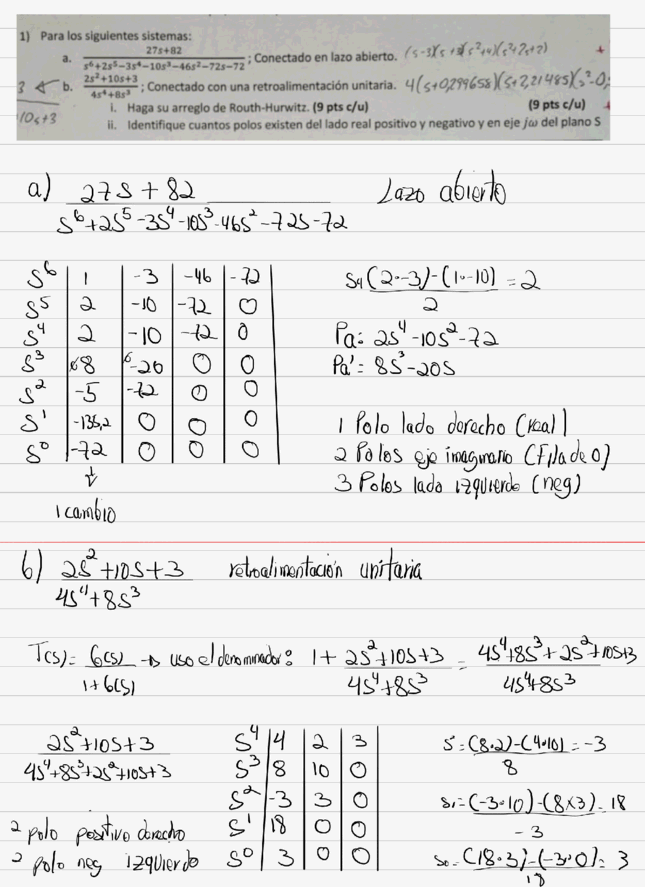 1) Para los siguientes sistemas:
a. \frac{27s+82}{s^6+2s^5-3s^4-10s^3-46s^2-72s-72}; Conectado en lazo abierto. (s-3)(s+3)(s²+4)(s²+2s+2)
b. \frac{2s^2+10s+3}{4s^4+8s^3}; Conectado con una retroalimentación unitaria. 4(s+0,299658)(s+2,21485)(s²-0,
10s+3
i. Haga su arreglo de Routh-Hurwitz. (9 pts c/u) (9 pts c/u)
ii. Identifique cuantos polos existen del lado real positivo y negativo y en eje jω del plano S
a) \frac{27S+82}{S^6+2S^5-3S^4-10S^3-46S^2-72S-72} Lazo abierto
S^6 | 1 | -3 | -46 | -72
S^5 | 2 | -10 | -72 | 0
S^4 | 2 | -10 | -72 | 0
S^3 | 8 | -20 | 0 | 0
S^2 | -5 | -72 | 0 | 0
S^1 | -135,2 | 0 | 0 | 0
S^0 | -72 | 0 | 0 | 0
↓
1 cambio
S4 \frac{(2·-3)-(1·-10)}{2} = 2
Pa: 2S^4-10S^2-72
Pa': 8S^3-20S
1 Polo lado derecho (real)
2 Polos eje imaginario (Fila de 0)
3 Polos lado izquierdo (neg)
b) \frac{2S^2+10S+3}{4S^4+8S^3} retroalimentación unitaria
T(S)= \frac{G(S)}{1+G(S)} → uso el denominador: 1+\frac{2S^2+10S+3}{4S^4+8S^3} = \frac{4S^4+8S^3+2S^2+10S+3}{4S^4+8S^3}
\frac{2S^2+10S+3}{4S^4+8S^3+2S^2+10S+3}
2 polo positivo derecho
2 polo neg izquierdo
S^4 | 4 | 2 | 3
S^3 | 8 | 10 | 0
S^2 | -3 | 3 | 0
S^1 | 18 | 0 | 0
S^0 | 3 | 0 | 0
S²=\frac{(8·2)-(4·10)}{8} = -3
S1=\frac{(-3·10)-(8×3)}{-3} = 18
S0=\frac{(18·3)-(-3·0)}{18} = 3